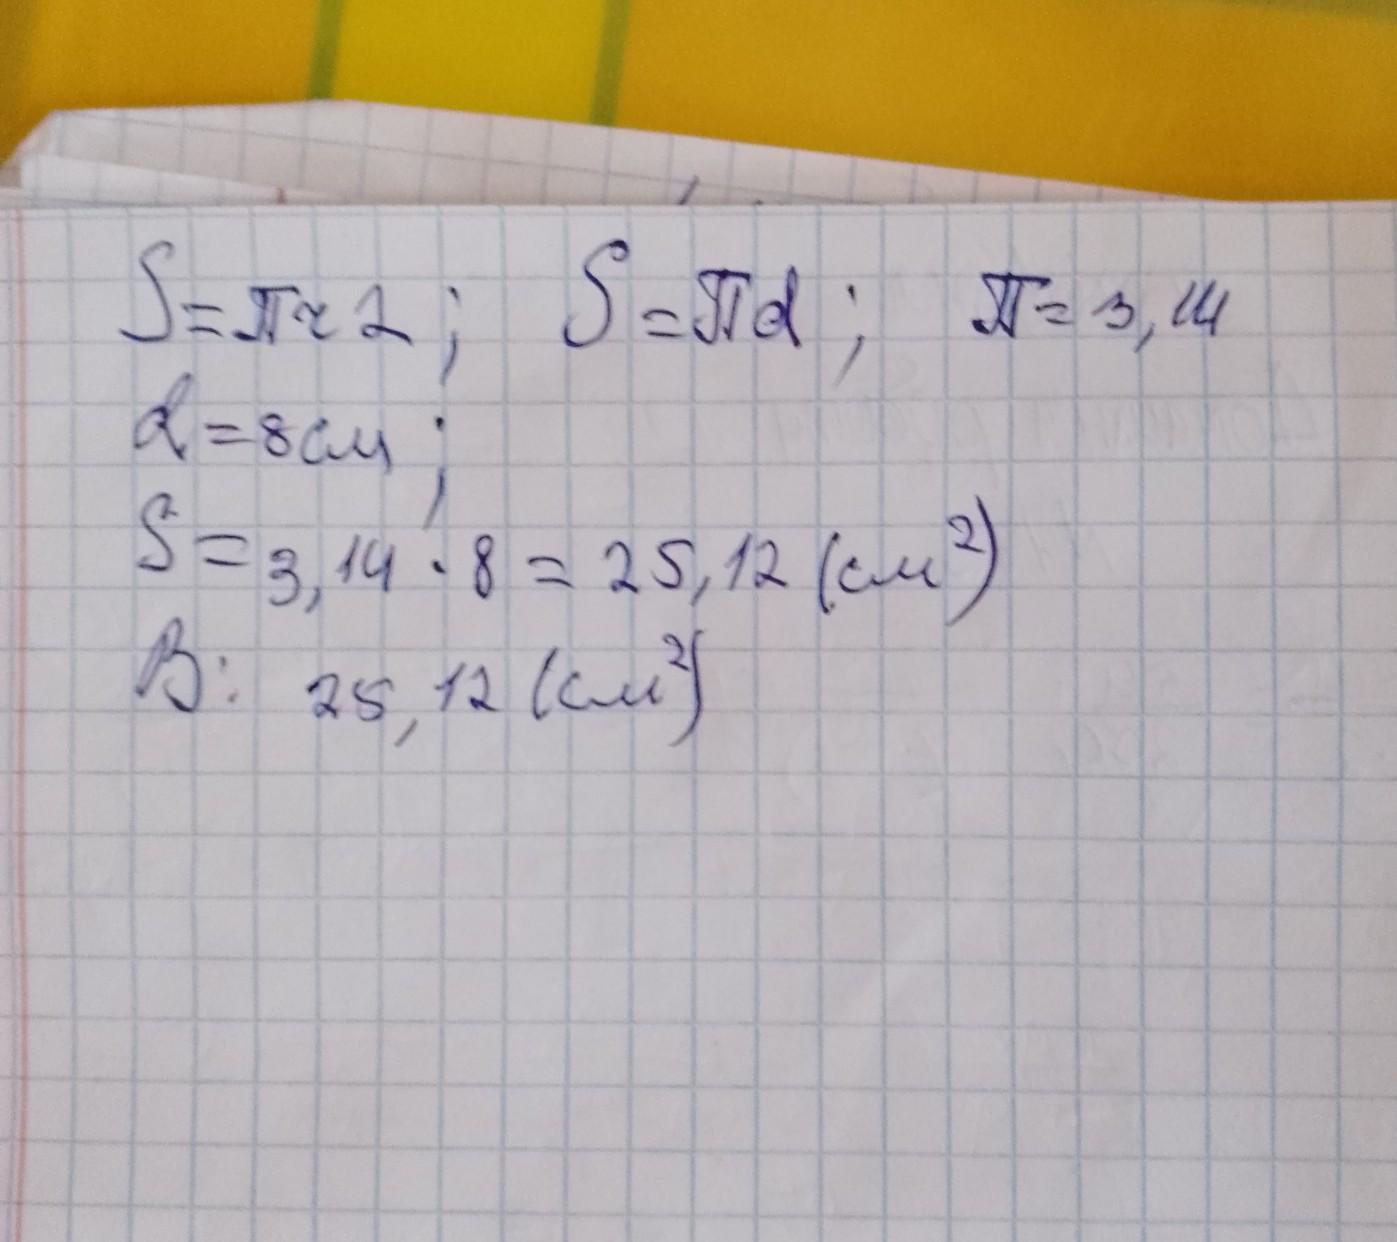 S=πr2; S=πd; π=3,14
d=8см;
S=3,14·8=25,12(см²)
В: 25,12(см²)